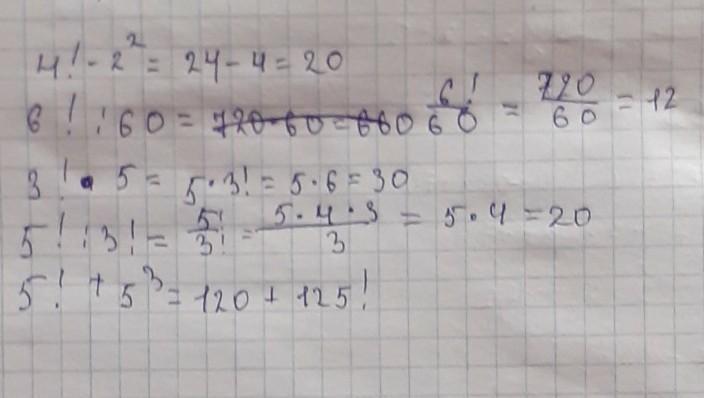 4! - 2² = 24 - 4 = 20
6! : 60 = ~~720-60=660~~ 6!/60 = 720/60 = 12
3! • 5 = 5 · 3! = 5 · 6 = 30
5! : 3! = 5!/3! = 5·4·3/3 = 5·4 = 20
5! + 5³ = 120 + 125!